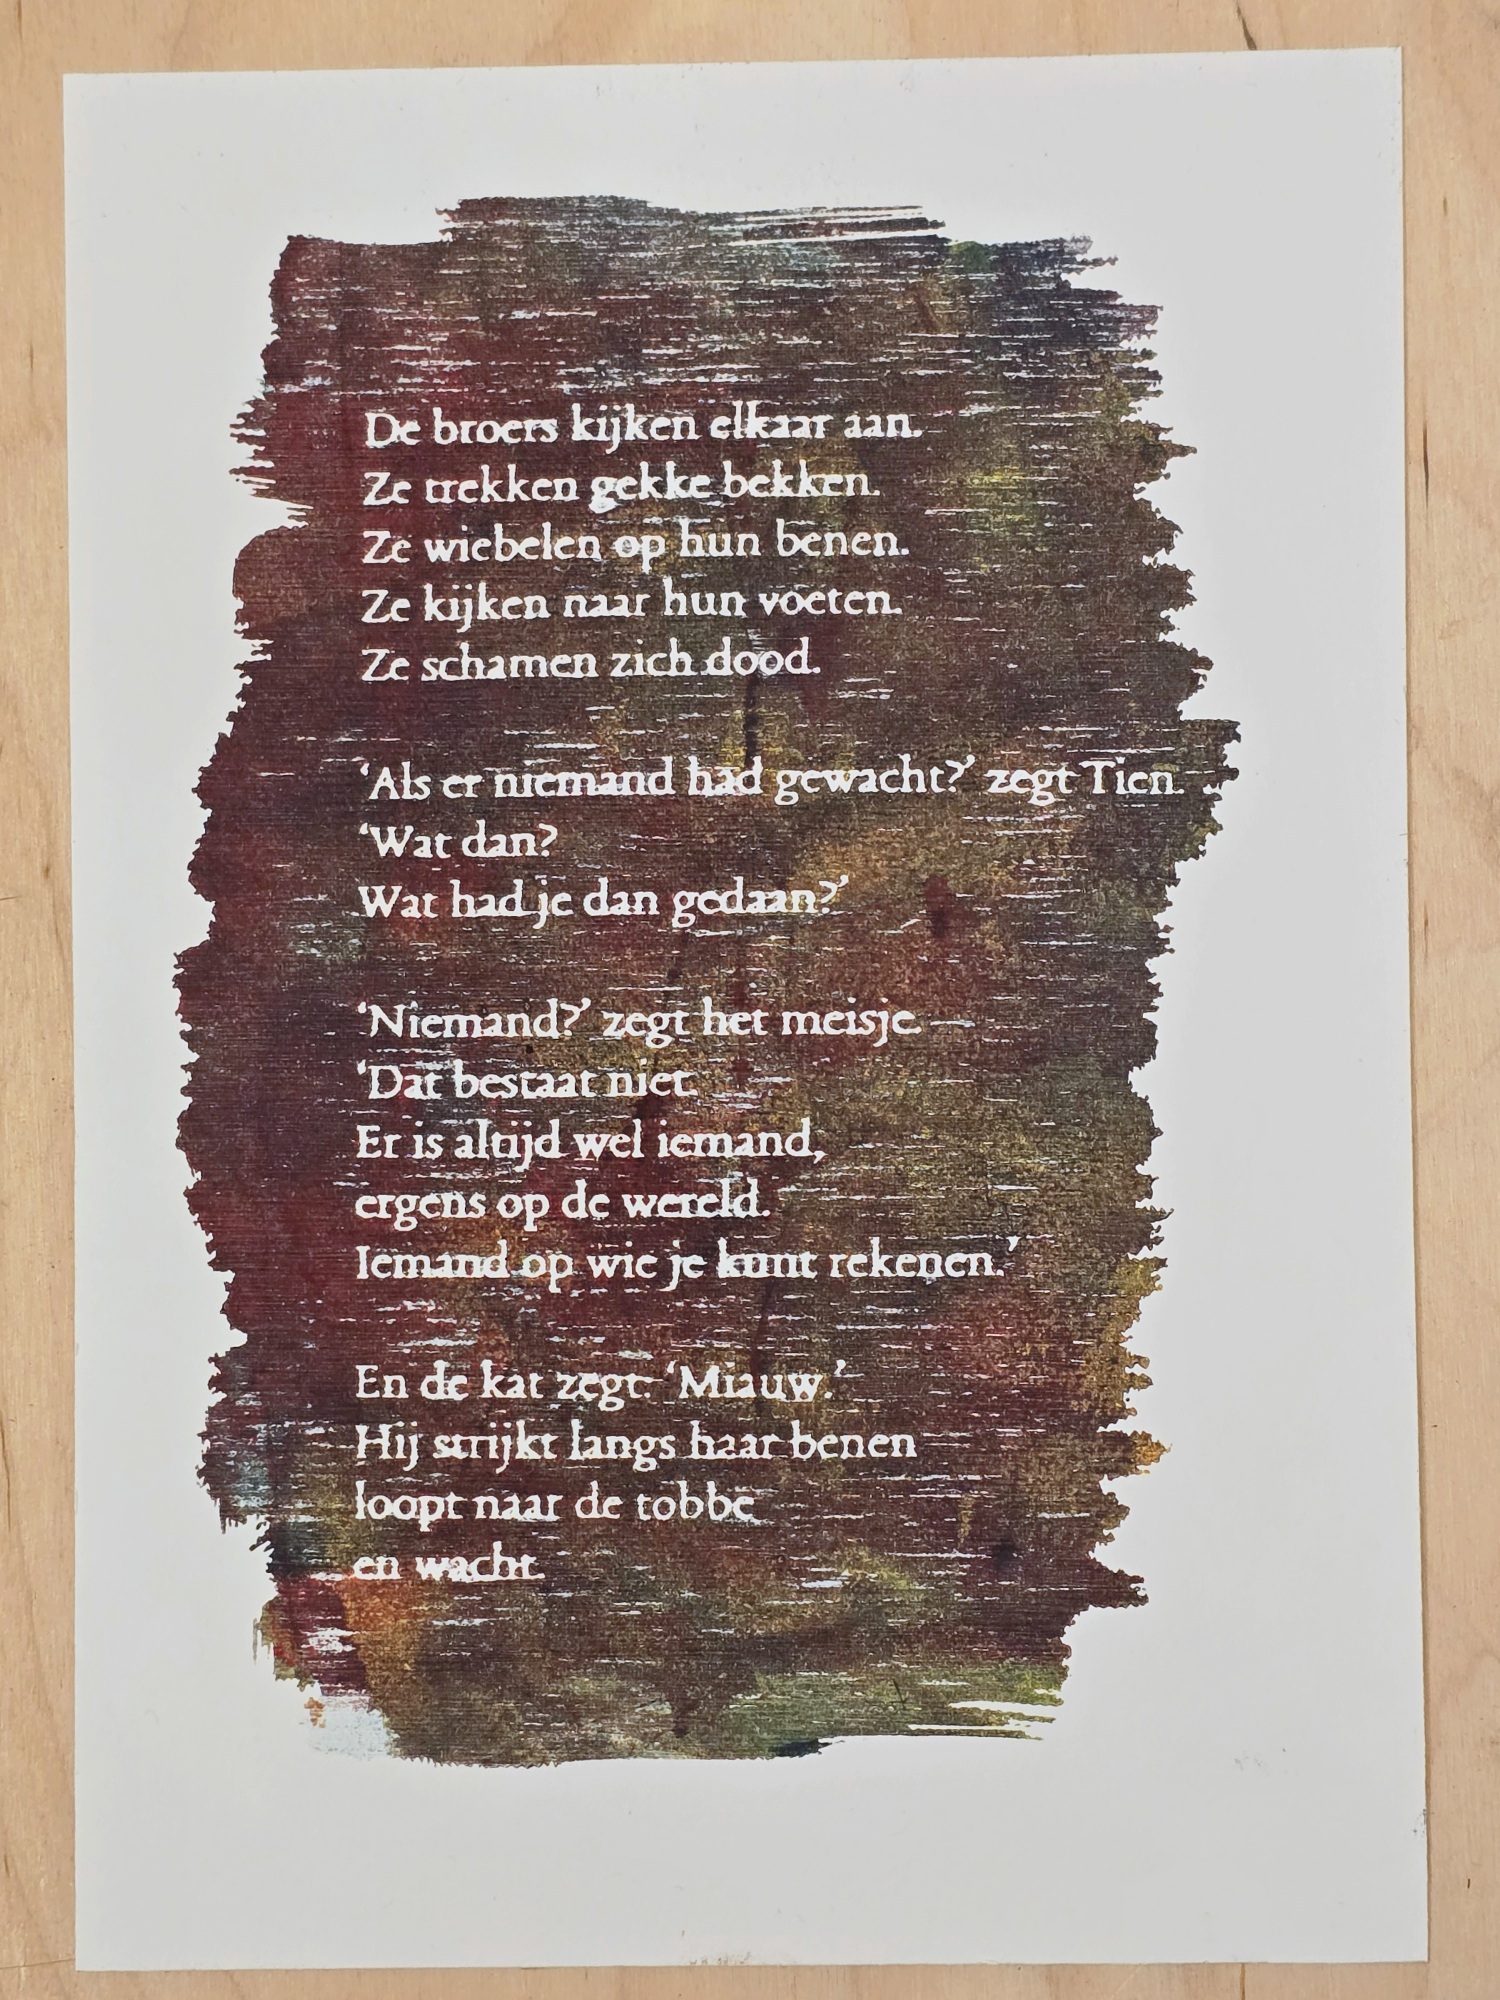 De broers kijken elkaar aan.
Ze trekken gekke bekken.
Ze wiebelen op hun benen.
Ze kijken naar hun voeten.
Ze schamen zich dood.
‘Als er niemand had gewacht?’ zegt Tien.
‘Wat dan?
Wat had je dan gedaan?’
‘Niemand?’ zegt het meisje.
‘Dat bestaat niet.
Er is altijd wel iemand,
ergens op de wereld.
Iemand op wie je kunt rekenen.’
En de kat zegt: ‘Miauw.’
Hij strijkt langs haar benen
loopt naar de tobbe
en wacht.